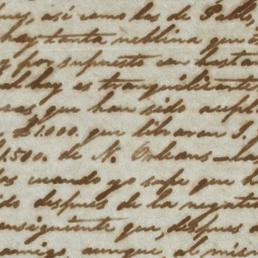 así como las de Pablo,
hay tanta neblina que
y por supuesto con bastan
hay es tranquilizante
que han sido acep
£1.000. que libraron I.
1,500. de N. Orleans — la
cuando yo supe que h
do despues de la negoti
ensiguiente que, despues d
amigo, aunque al mism